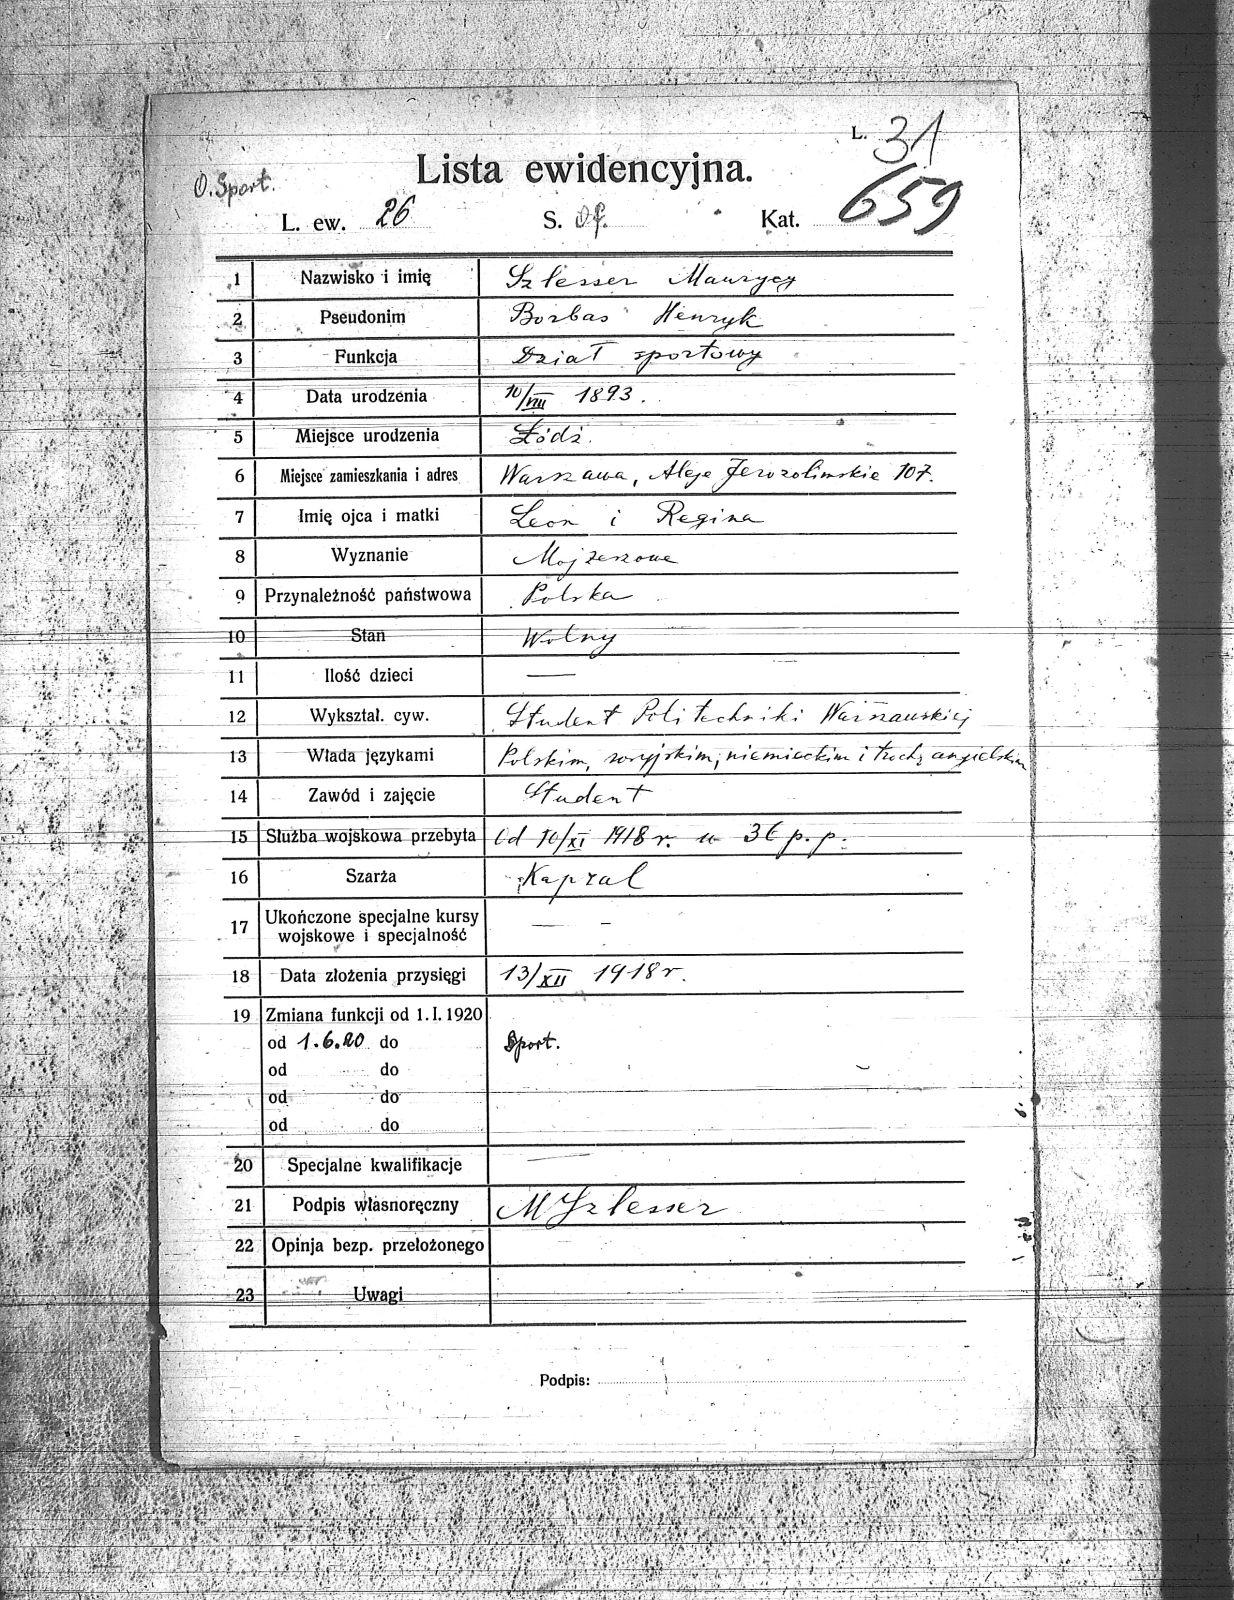 L. 31
Lista ewidencyjna.
O. Sport.
659
L. ew. 26 S. Of. Kat.
1 Nazwisko i imię Szlesser Maurycy
2 Pseudonim Borbas Henryk
3 Funkcja Dział sportowy
4 Data urodzenia 10/VIII 1893.
5 Miejsce urodzenia Łódź.
6 Miejsce zamieszkania i adres Warszawa, Aleje Jerozolimskie 107.
7 Imię ojca i matki Leon i Regina
8 Wyznanie Mojżeszowe
9 Przynależność państwowa Polska
10 Stan Wolny
11 Ilość dzieci —
12 Wykształ. cyw. Student Politechniki Warszawskiej
13 Włada językami Polskim, rosyjskim, niemieckim i trochę angielskim
14 Zawód i zajęcie Student
15 Służba wojskowa przebyta Od 10/XI 1918 r. w 36 p. p.
16 Szarża Kapral
17 Ukończone specjalne kursy — –
wojskowe i specjalność
18 Data złożenia przysięgi 13/XII 1918 r.
19 Zmiana funkcji od 1. I. 1920
od 1.6.20 do Sport.
od do
od do
od do
20 Specjalne kwalifikacje —
21 Podpis własnoręczny M Szlesser
22 Opinja bezp. przełożonego
23 Uwagi
Podpis: